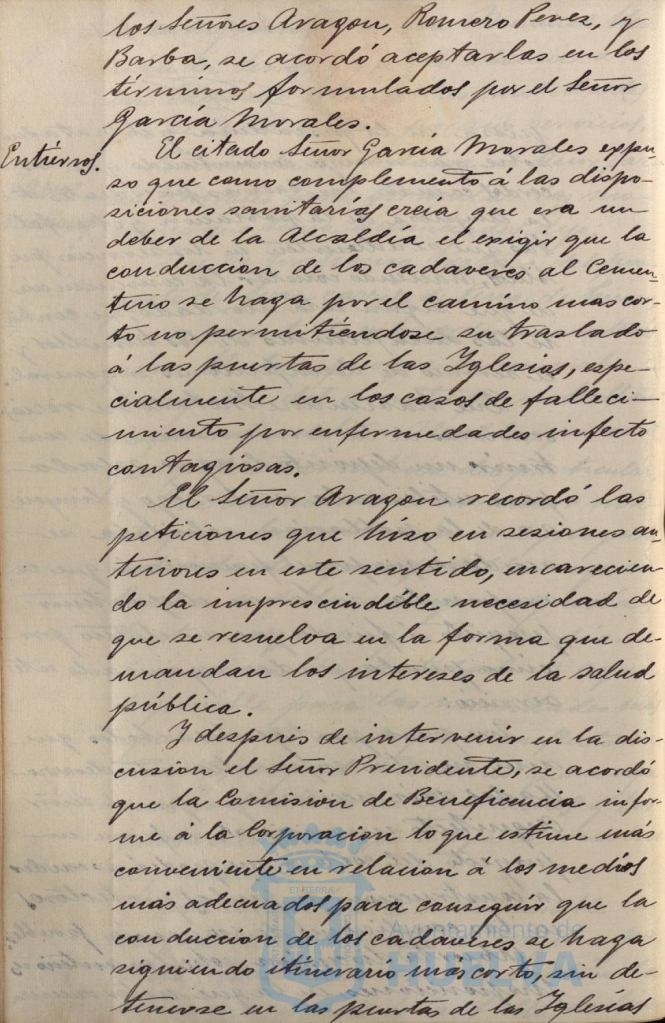 los Señores Aragon, Romero Perez, y
Barba, se acordó aceptarlas en los
términos formulados por el Señor
García Morales.
Entierros.
El citado Señor García Morales expu-
so que como complemento á las dispo-
siciones sanitarias creia que era un
deber de la Alcaldía el exigir que la
conduccion de los cadaveres al Cemen-
terio se haga por el camino mas cor-
to no permitiéndose su traslado
á las puertas de las Iglesias, espe-
cialmente en los casos de falleci-
miento por enfermedades infecto
contagiosas.
El Señor Aragon recordó las
peticiones que hizo en sesiones an-
teriores en este sentido, encarecien-
do la imprescindible necesidad de
que se resuelva en la forma que de-
mandan los intereses de la salud
pública.
Y después de intervenir en la dis-
cusion el Señor Presidente, se acordó
que la Comision de Beneficencia infor-
me á la Corporacion lo que estime más
conveniente en relacion á los medios
más adecuados para conseguir que la
conduccion de los cadaveres se haga
siguiendo itinerario más corto, sin de-
tenerse en las puertas de las Iglesias
Ayuntamiento de
HUELVA